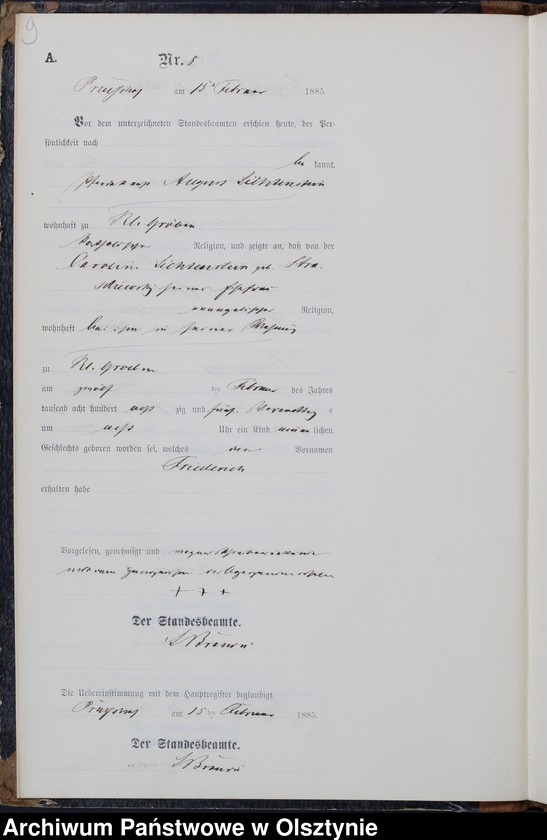 9
A.
Nr. 8
am 15 Februar 1885.
Vor dem unterzeichneten Standesbeamten erschien heute, der Per-
sönlichkeit nach
be kannt,
August Lichtenstein
wohnhaft zu Kl. Gröben
Religion, und zeigte an, daß von der
Caroline Lichtenstein geb.
seiner Ehefrau
evangelischer Religion,
wohnhaft bei ihm in seiner Wohnung
zu Kl. Groeben
am ten Februar des Jahres
tausend acht hundert acht zig und fünf, Vormittags
um acht Uhr ein Kind männ lichen
Geschlechts geboren worden sei, welches den Vornamen
Friederich
erhalten habe
Vorgelesen, genehmigt und wegen
mit dem versehen
+ + +
Der Standesbeamte.
Die Uebereinstimmung mit dem Hauptregister beglaubigt.
am 15 ten Februar 1885.
Der Standesbeamte.
Archiwum Państwowe w Olsztynie